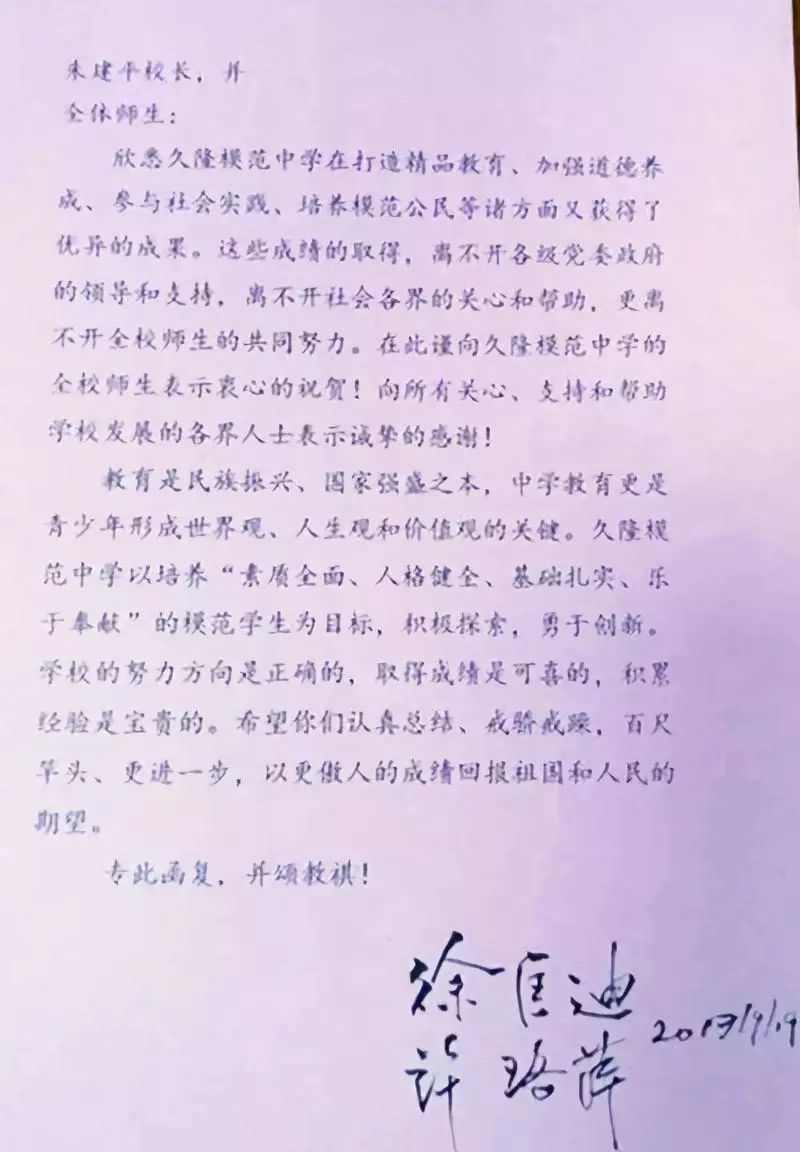 朱建平校长，并
全体师生：
欣悉久隆模范中学在打造精品教育、加强道德养
成、参与社会实践、培养模范公民等诸方面又获得了
优异的成果。这些成绩的取得，离不开各级党委政府
的领导和支持，离不开社会各界的关心和帮助，更离
不开全校师生的共同努力。在此谨向久隆模范中学的
全校师生表示衷心的祝贺！向所有关心、支持和帮助
学校发展的各界人士表示诚挚的感谢！
教育是民族振兴、国家强盛之本，中学教育更是
青少年形成世界观、人生观和价值观的关键。久隆模
范中学以培养“素质全面、人格健全、基础扎实、乐
于奉献”的模范学生为目标，积极探索，勇于创新。
学校的努力方向是正确的，取得成绩是可喜的，积累
经验是宝贵的。希望你们认真总结、戒骄戒躁，百尺
竿头、更进一步，以更傲人的成绩回报祖国和人民的
期望。
专此函复，并颂教祺！
徐匡迪 2013/9/19
许珞萍